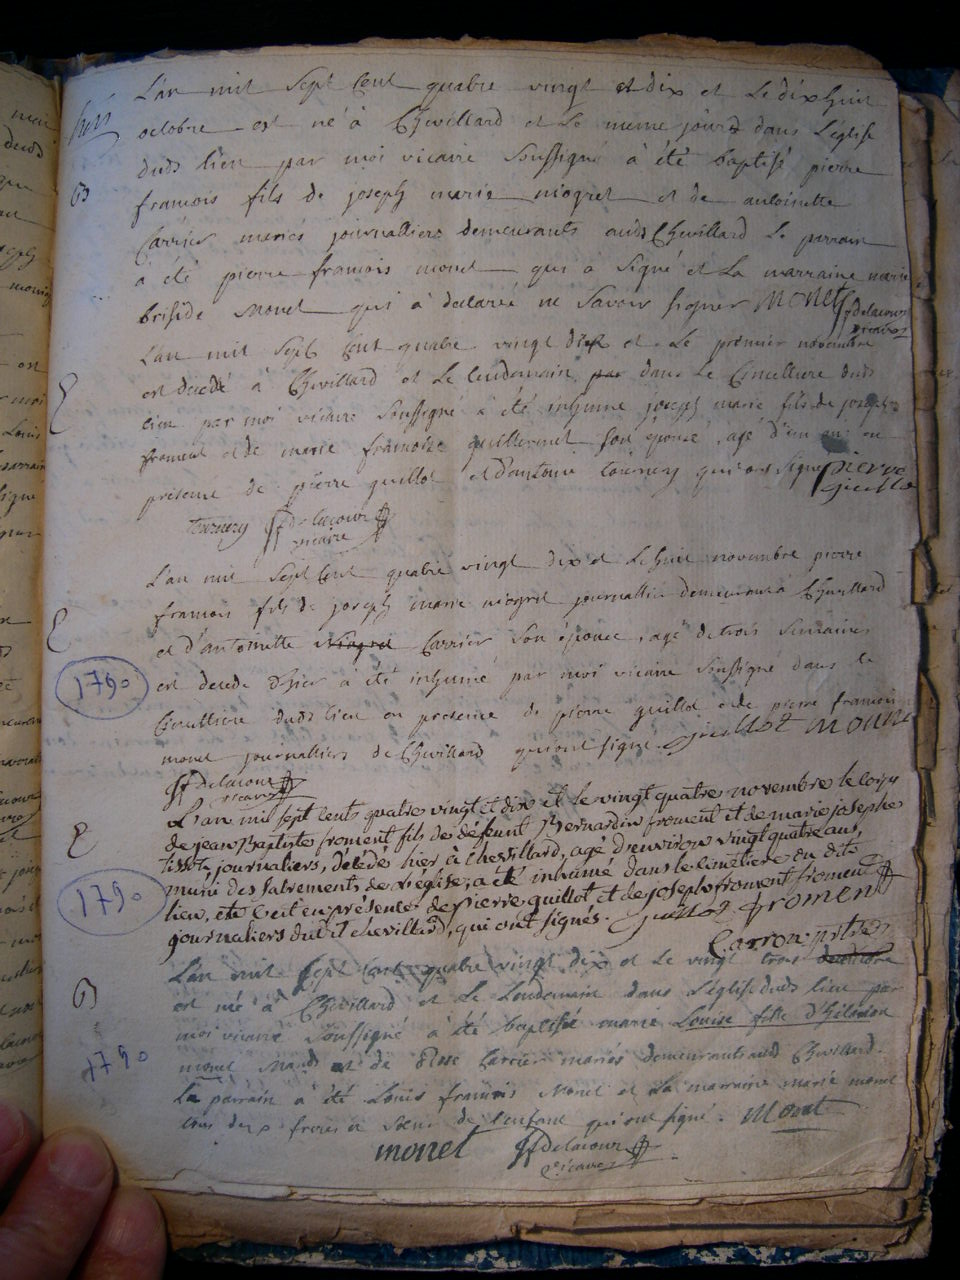 L'an mil sept cent quatre vingt et dix et le dix huit
octobre est né à Chevillard et le meme jour dans l'église
dudt lieu par moi vicaire soussigné à été baptisé pierre
B
francois fils de joseph marie niogret et de antoinette
Carrier mariés journalliers demeurants audt Chevillard le parrain
à été pierre francois monet qui à signé et la marraine marie
briside Monet qui à declarée ne savoir signer Monet ff delacour
vicaire
L'an mil sept cent quatre vingt dix et le premier novembre
est decedé à Chevillard et le lendemain par dans le Cimettiere dudt
lieu par moi vicaire soussigné à été inhumé joseph marie fils de joseph
froment et de marie francoise guillermet son épouse, agé d'un an en
presence de pierre guillot et d'antoine tournery qui ont signé pierre
guillot
tournery ff delacour
vicaire
L'an mil sept cent quatre vingt dix et le huit novembre pierre
francois fils de joseph marie niogret journallier demeurant à Chevillard
et d'antoinette Carrier son épouse, agé de trois semaines
1790
est decedé d'hier à été inhumé par moi vicaire soussigné dans le
Cimettiere dudt lieu en presence de pierre guillot et de pierre francois
monet journalliers de Chevillard qui ont signé guillot monet
ff delacour
vicaire
L'an mil sept cents quatre vingt et dix et le vingt quatre novembre le corps
de jean Baptiste froment fils de défeunt Bernardin froment et de marie josephe
tissot, journaliers, décédé hier à chevillard, agé d'environ vingt quatre ans,
muni des sacrements de l'église, a été inhumé dans le cimétiere du dit
1790
lieu, et c'est en présence de pierre guillot et de joseph froment froment
journaliers dudit chevillard, qui ont signés. guillot fromen
Carron ptre
L'an mil sept cent quatre vingt dix et le vingt trois
B
est né à Chevillard et le lendemain dans l'église dudt lieu par
moi vicaire soussigné à été baptisée marie Louise fille d'hilarion
1790
monet et de Carrier mariés demeurants audt Chevillard.
Le parrain à été Louis francois Monet et la marraine marie monet
tous deux freres et soeur de l'enfant qui ont signé. Monet
monet ff delacour
vicaire